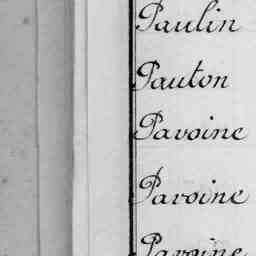 Paulin
Pauton
Pavoine
Pavoine
Pavoine